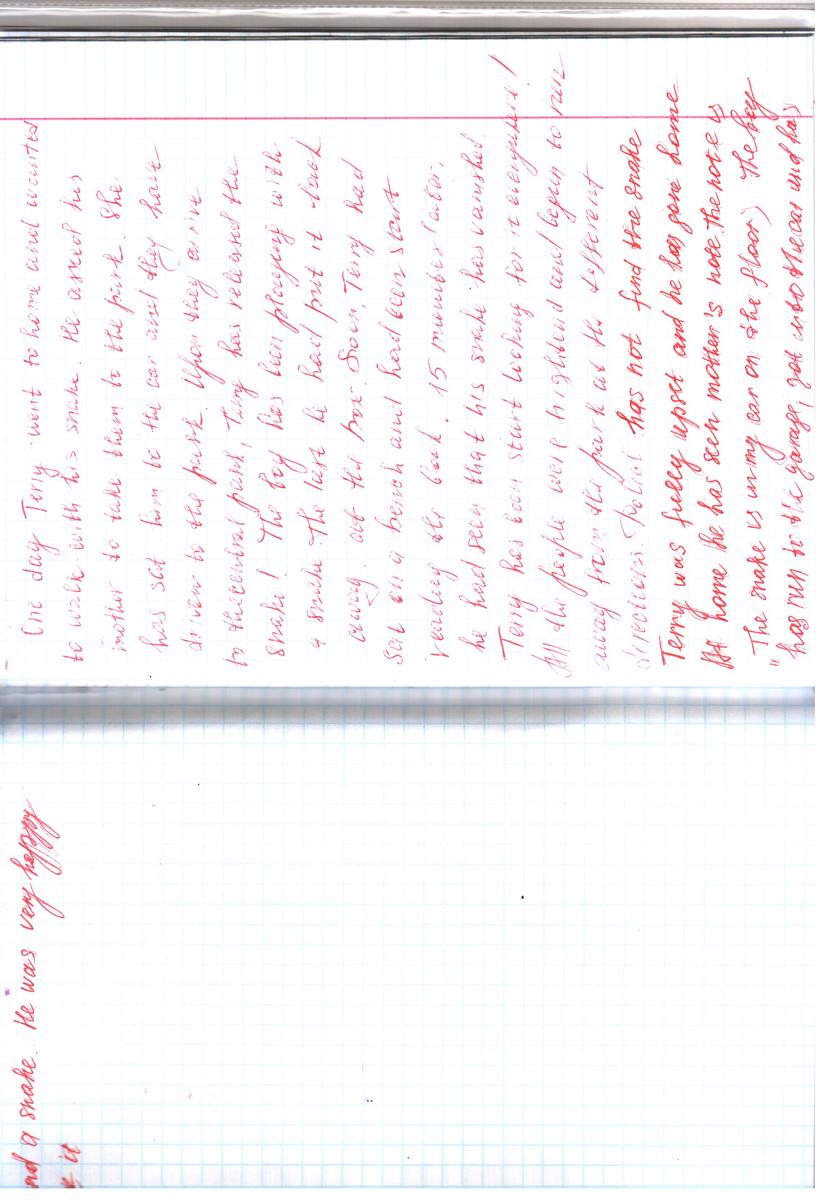 One day Terry went to home and wanted
to walk with his snake. He asked his
mother to take them to the park. She
has sat him to the car and they have
driven to the park. Upon they arrive
to the central park, Terry has released the
snake! The boy has been playing with
a snake The last he had put it back
away at the box. Soon, Terry had
sat on a bench and had been start
reading the book. 15 minutes later,
he had seen that his snake has vanished.
Terry has been start looking for it everywhere!
All the people were hightend and begen to run
away from the park at the different
directions Police has not find the snake
Terry was fully upset and he has gone home
At home he has seen mother's note. the note is
The snake is in my car on the floor) The boy
"has run to the garage, got into the car and has
nd a snake. He was very happy
it